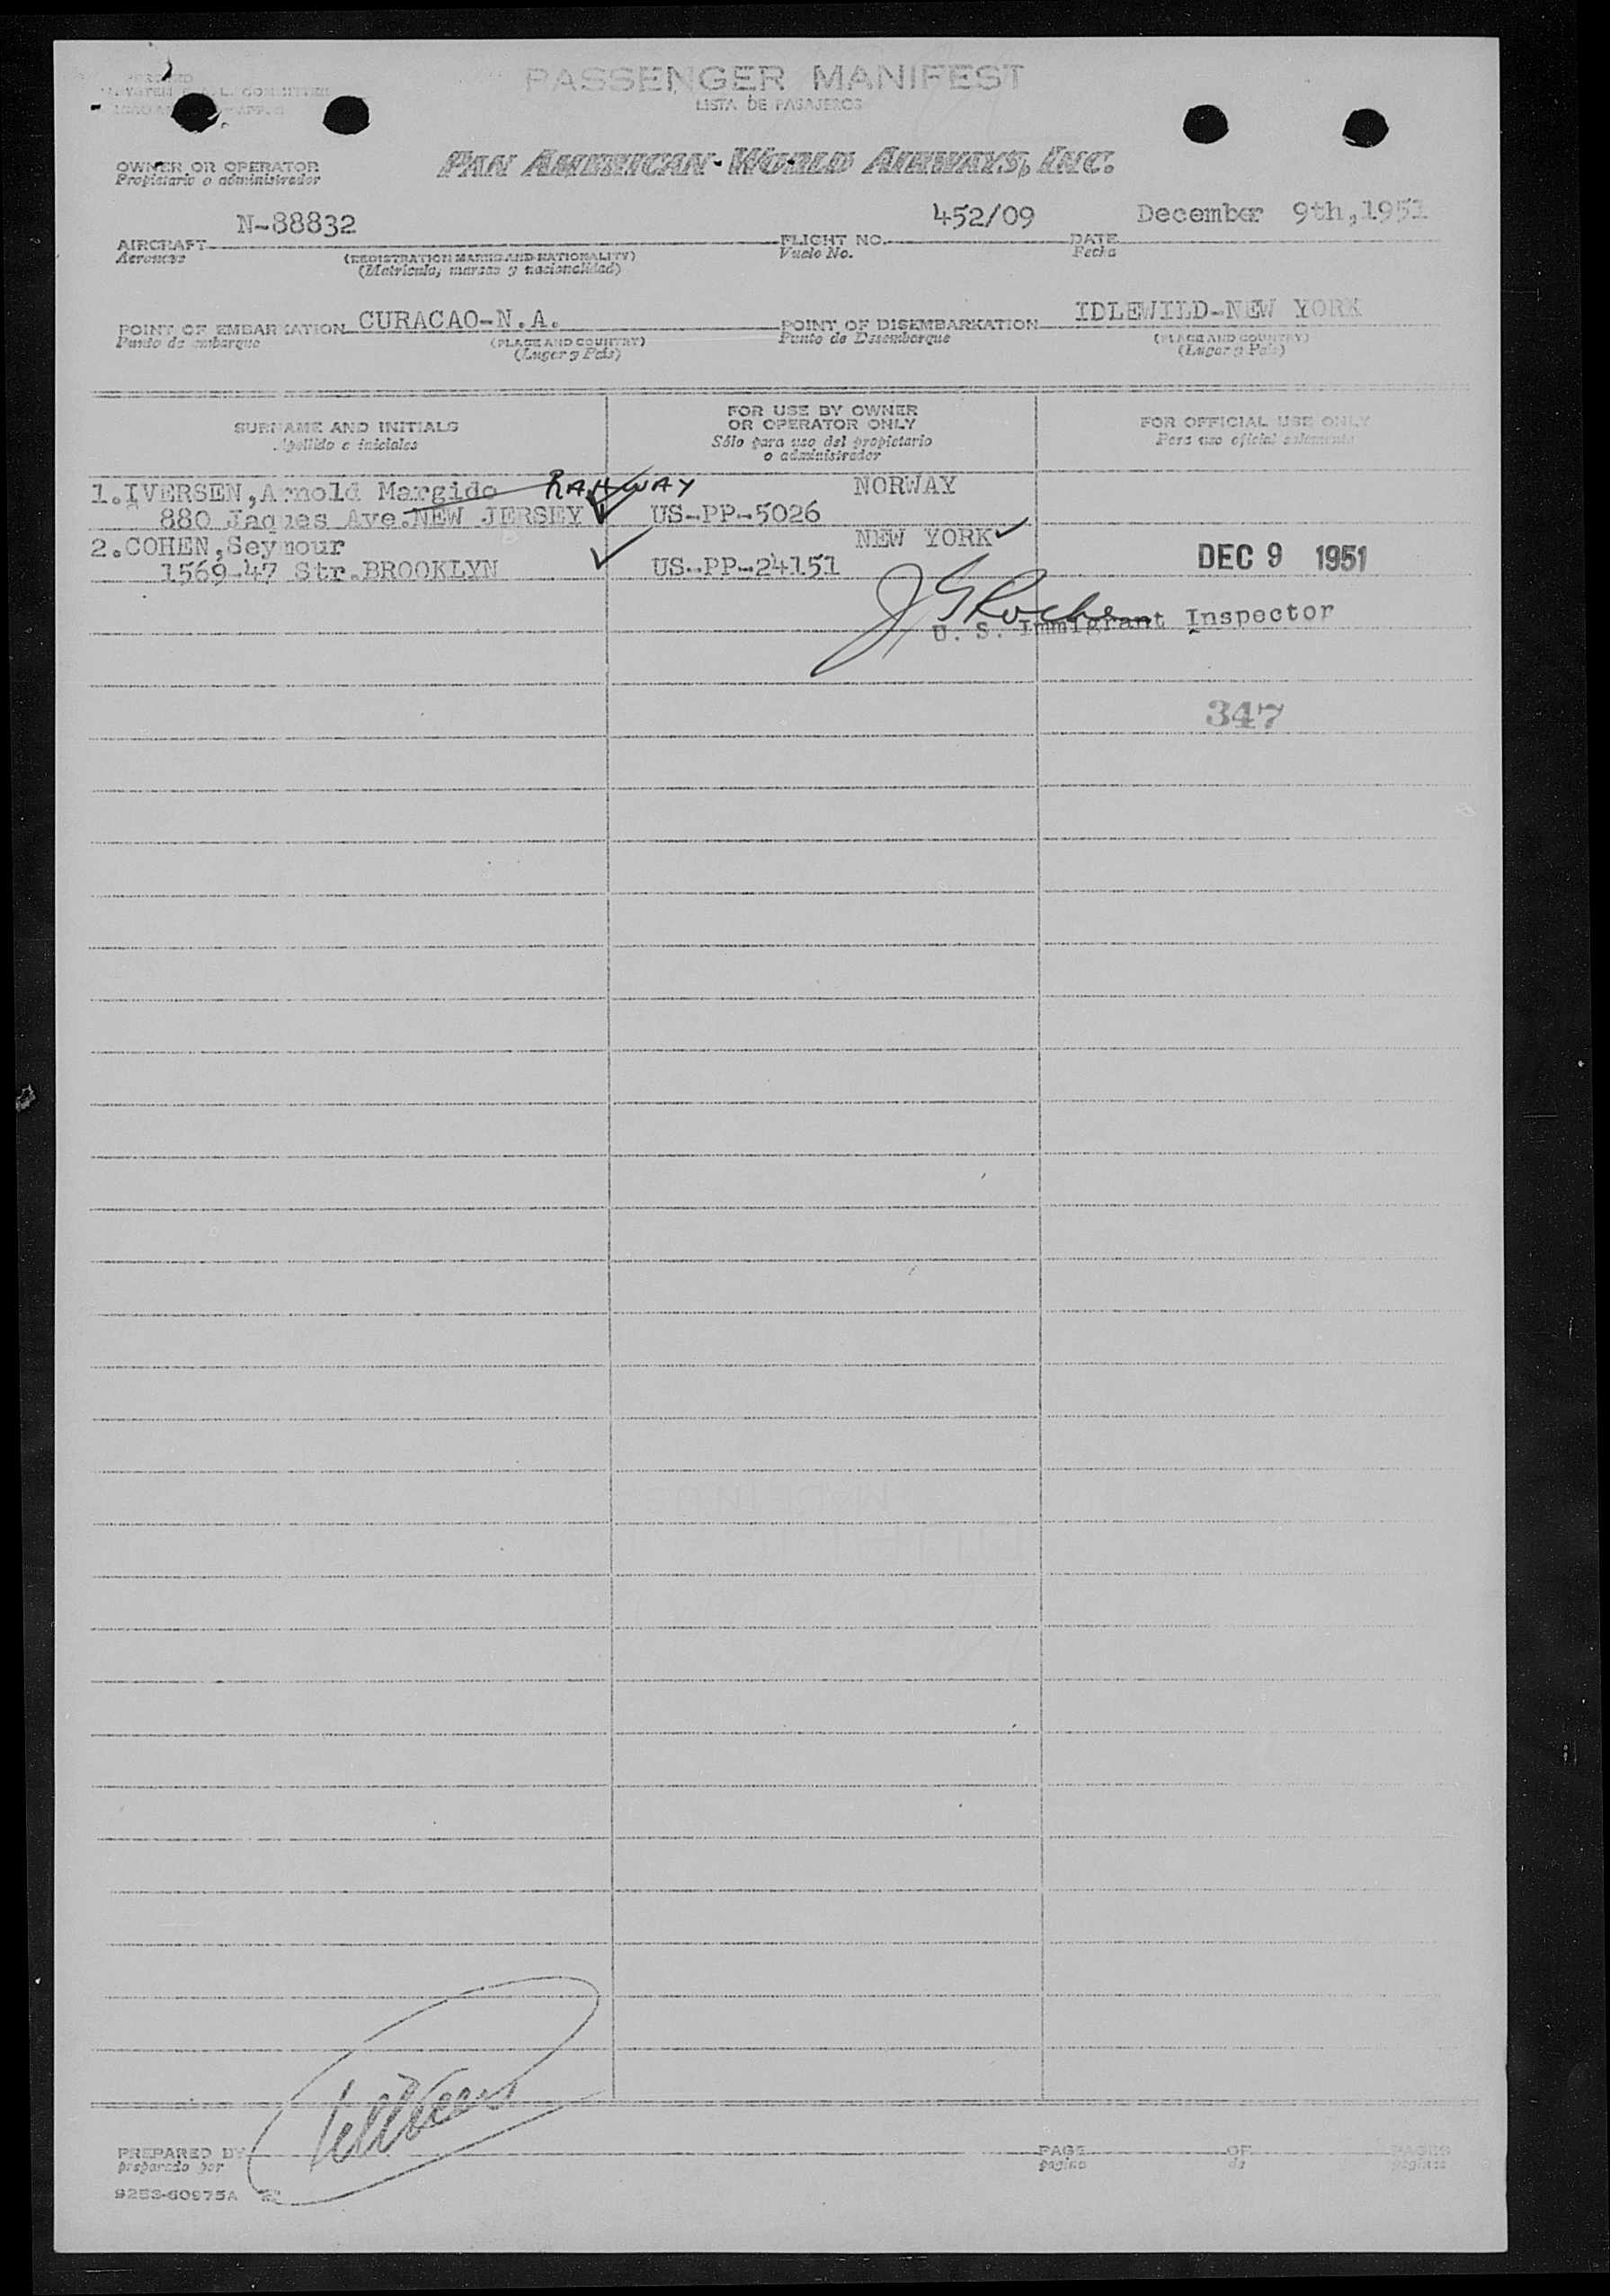 PASSENGER MANIFEST
LISTA DE PASAJEROS
OWNER OR OPERATOR
Propietario o administrador
PAN AMERICAN WORLD AIRWAYS, INC.
AIRCRAFT N-88832 FLIGHT NO. 452/09 DATE December 9th, 1951
Aeronave (REGISTRATION MARKS AND NATIONALITY) Vuelo No. Fecha
(Matrícula, marcas y nacionalidad)
POINT OF EMBARKATION CURACAO-N.A. POINT OF DISEMBARKATION IDLEWILD-NEW YORK
Punto de embarque (PLACE AND COUNTRY) Punto de Desembarque (PLACE AND COUNTRY)
(Lugar y País) (Lugar y País)
SURNAME AND INITIALS
Apellido e iniciales
FOR USE BY OWNER
OR OPERATOR ONLY
Sólo para uso del propietario
o administrador
FOR OFFICIAL USE ONLY
Para uso oficial solamente
1.IVERSEN,Arnold Margido RAHWAY NORWAY
880 Jaques Ave.NEW JERSEY US-PP-5026
2.COHEN,Seymour NEW YORK
1569-47 Str.BROOKLYN US-PP-24151
DEC 9 1951
U. S. Immigrant Inspector
347
PREPARED BY PAGE OF PAGES
preparado por página de páginas
9253-60975A